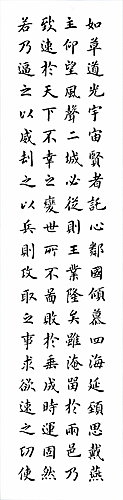 如草道光宇宙賢者託心鄰國傾慕四海延頸思戴燕
主仰望風聲二城必從則王業隆矣雖淹留於兩邑乃
致速於天下不幸之變世所不圖敗於垂成時運固然
若乃逼之以威劫之以兵則攻取之事求欲速之功使